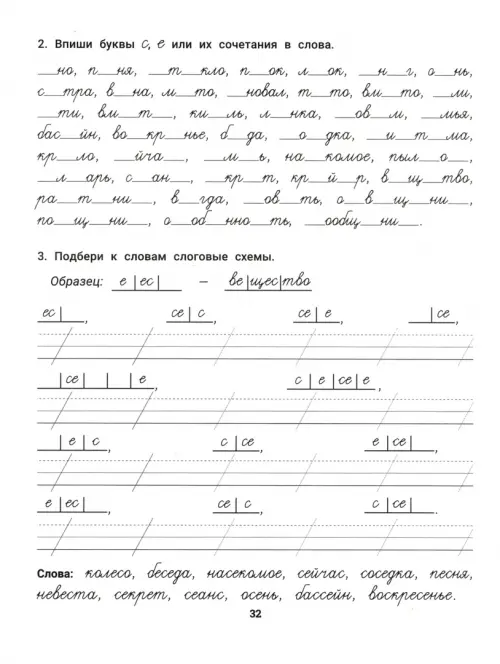 2. Впиши буквы с, е или их сочетания в слова.
__но, п__ня, __т__кло, п__ок, л__ок, __н__г, о__нь,
с__тра, в__на, м__то, __новал, т__то, вм__то, __ли,
__ти, вм__т__, ки__ль, л__нка, __ов__м, __мья,
бас__йн, во__кр__нье, б__да, __о__дка, __и__т__ма,
кр__ло, __йча__, __м__ь, на__комое, пыл__о__,
__л__арь, с__ан__, __кр__т, кр__й__р, в__щ__тво,
ра__т__ни__, в__гда, __ов__ть, о__в__щ__ни__,
по__щ__ни__, о__об__нно__ть, __ообщ__ни__.
3. Подбери к словам слоговые схемы.
Образец: __е|ес|__ – ве|щес|тво
ес|__, се|с__, се|е__, __|се__,
__|се|__|__|е__, с__|е|се|е__,
__|е|с__, с__|се__, е__|се|__,
е__|ес|__, се__|с__, с__|се|__.
Слова: колесо, беседа, насекомое, сейчас, соседка, песня,
невеста, секрет, сеанс, осень, бассейн, воскресенье.
32